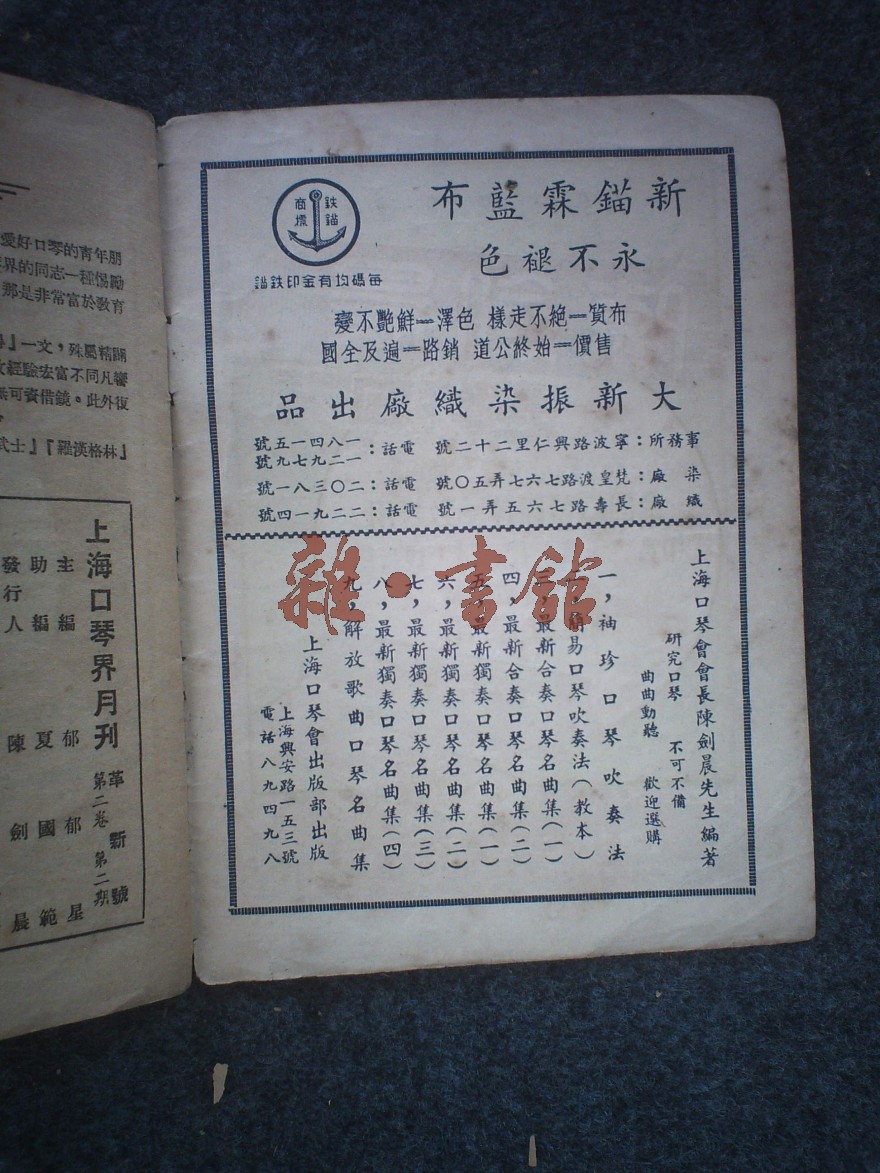 新錨霖藍布
永不褪色
鉄錨
商標
每碼均有金印鉄錨
布質一絕不走樣 色澤一鮮艷不變
售價一始終公道 銷路一遍及全國
大新振染織廠出品
事務所：寧波路興仁里二十二號 電話：一八四一五號
一二九七九號
染廠：梵皇渡路七六七弄五〇號 電話：二〇三八一號
織廠：長壽路七六五弄一號 電話：二二九一四號
上海口琴會會長陳劍晨先生編著
研究口琴 不可不備
曲曲動聽 歡迎選購
一，袖珍口琴吹奏法
二，簡易口琴吹奏法（教本）
三，最新合奏口琴名曲集（一）
四，最新合奏口琴名曲集（二）
五，最新獨奏口琴名曲集（一）
六，最新獨奏口琴名曲集（二）
七，最新獨奏口琴名曲集（三）
八，最新獨奏口琴名曲集（四）
九，解放歌曲口琴名曲集
上海口琴會出版部出版
上海興安路一五三號
電話八九四九八
雜·書館
愛好口琴的青年朋
界的同志一種惕勵
那是非常富於敎育
』一文，殊屬精闢
經驗宏富不同凡響
可資借鏡。此外復
武士』『羅漢格林』
上海口琴界月刋
革新號
第二卷 第二期
主編 郁郁星
助編 夏國範
發行人 陳劍晨